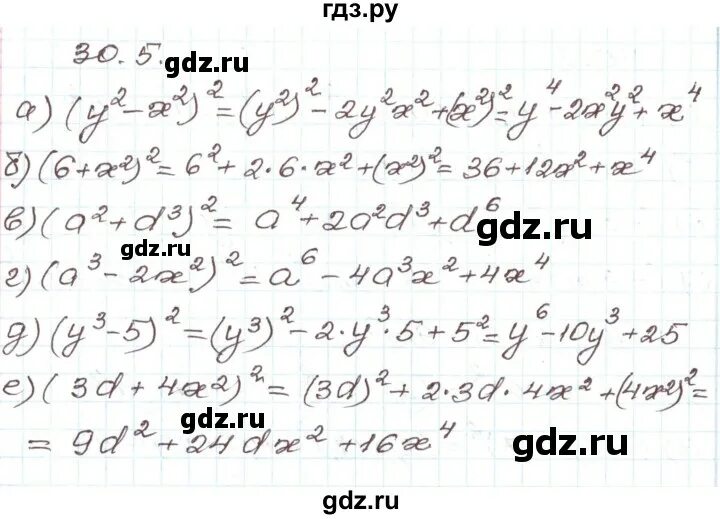 гдз.ру
30.5.
gdz.ru
а) (y² - x²)² = (y²)² - 2y²x² + (x²)² = y⁴ - 2x²y² + x⁴
б) (6 + x²)² = 6² + 2·6·x² + (x²)² = 36 + 12x² + x⁴
в) (a² + d³)² = a⁴ + 2a²d³ + d⁶
gdz.ru
gdz.ru
г) (a³ - 2x²)² = a⁶ - 4a³x² + 4x⁴
д) (y³ - 5)² = (y³)² - 2·y³·5 + 5² = y⁶ - 10y³ + 25
е) (3d + 4x²)² = (3d)² + 2·3d·4x² + (4x²)² =
= 9d² + 24dx² + 16x⁴
gdz.ru
gdz.ru